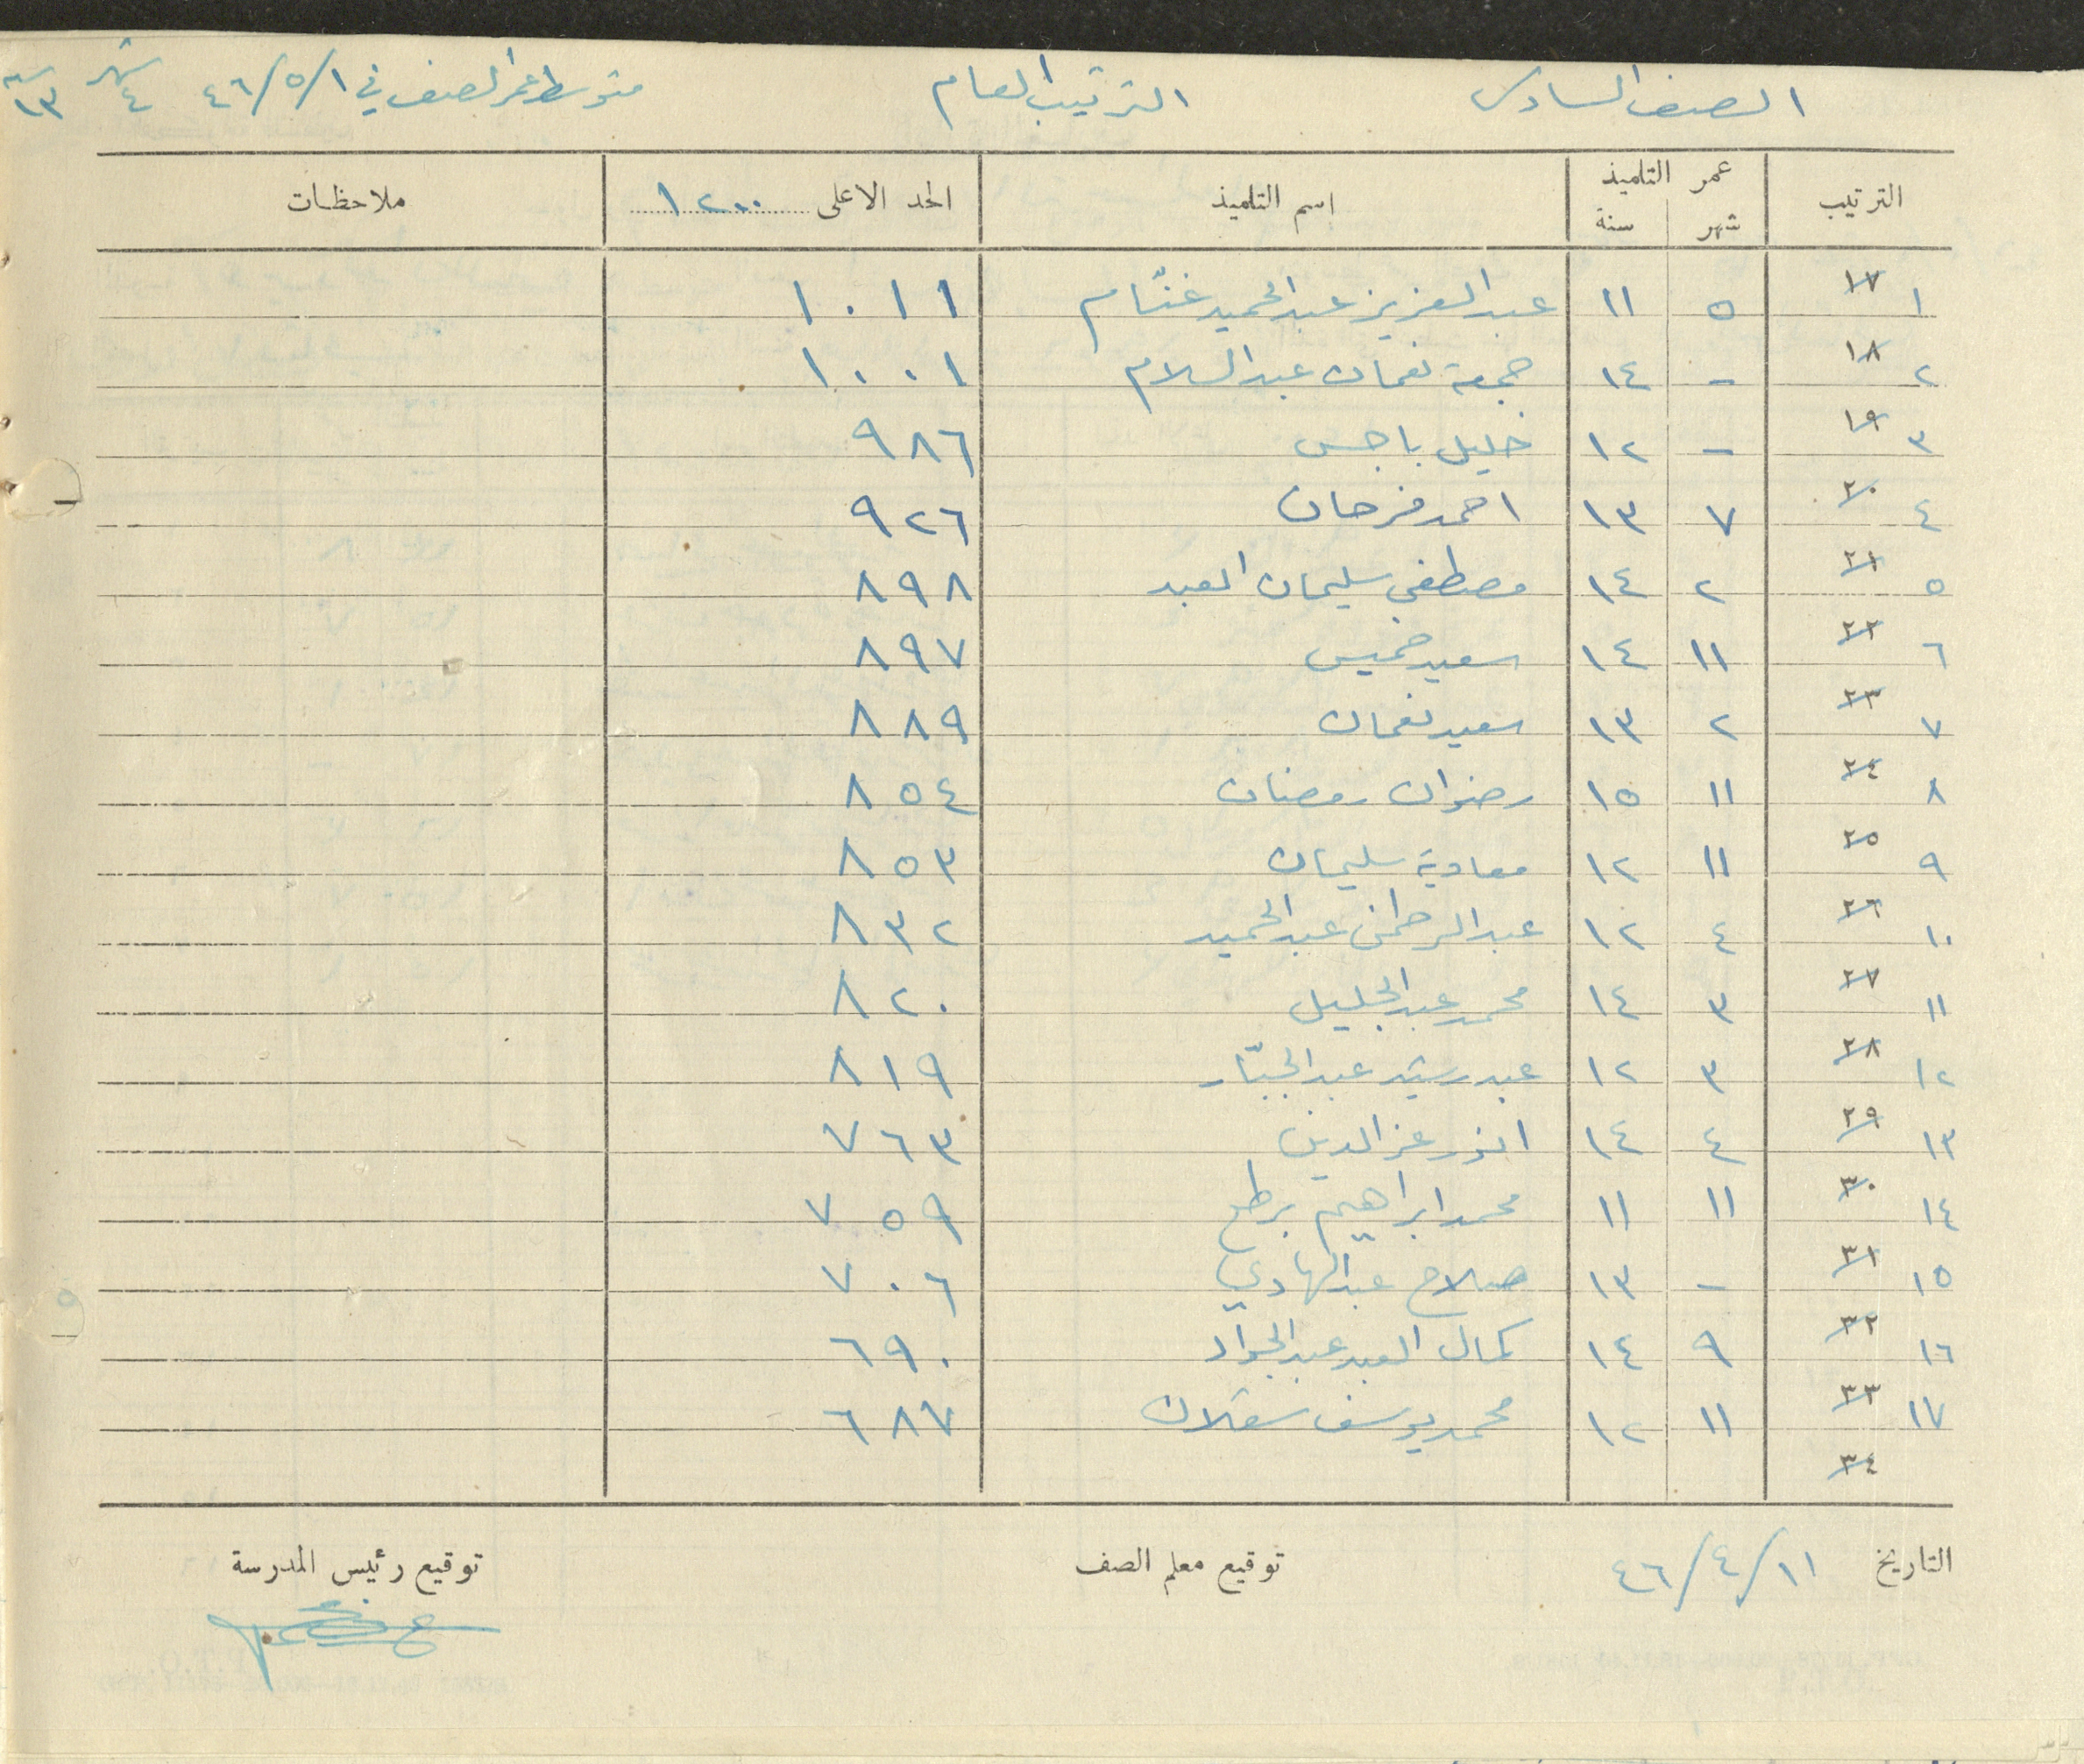 الصف السادس الترتيب العام متوسط عمر الصف في ١/٥/٤٦ شهر ٤ سنة ١٣
الترتيب عمر التلميذ شهر سنة اسم التلميذ الحد الاعلى ١٢٠٠ ملاحظات
١ ١٧ ٥ ١١ عبد العزيز عبد الحميد غنّام ١٠١١
٢ ١٨ - ١٤ جمعة نعمان عبد السلام ١٠٠١
٣ ١٩ - ١٢ خليل باجس ٩٨٦
٤ ٢٠ ٧ ١٣ احمد فرحان ٩٢٦
٥ ٢١ ٢ ١٤ مصطفى سليمان العبد ٨٩٨
٦ ٢٢ ١١ ١٤ سعيد خميس ٨٩٧
٧ ٢٣ ٢ ١٣ سعيد نعمان ٨٨٩
٨ ٢٤ ١١ ١٥ رضوان رمضان ٨٥٤
٩ ٢٥ ١١ ١٢ معاوية سليمان ٨٥٣
١٠ ٢٦ ٤ ١٢ عبد الرحمن عبد الحميد ٨٣٢
١١ ٢٧ ٣ ١٤ محمد عبد الجليل ٨٢٠
١٢ ٢٨ ٣ ١٢ عبد رشيد عبد الجبّار ٨١٩
١٣ ٢٩ ٤ ١٤ انور عز الدين ٧٦٣
١٤ ٣٠ ١١ ١١ محمد ابراهيم ٧٥٩
١٥ ٣١ - ١٣ صلاح عبد الهادي ٧٠٦
١٦ ٣٢ ٩ ١٤ كمال العبد عبد الجواد ٦٩٠
١٧ ٣٣ ١١ ١٢ محمد يوسف ٦٨٧
٣٤
التاريخ ١١/٤/٤٦ توقيع معلم الصف توقيع رئيس المدرسة